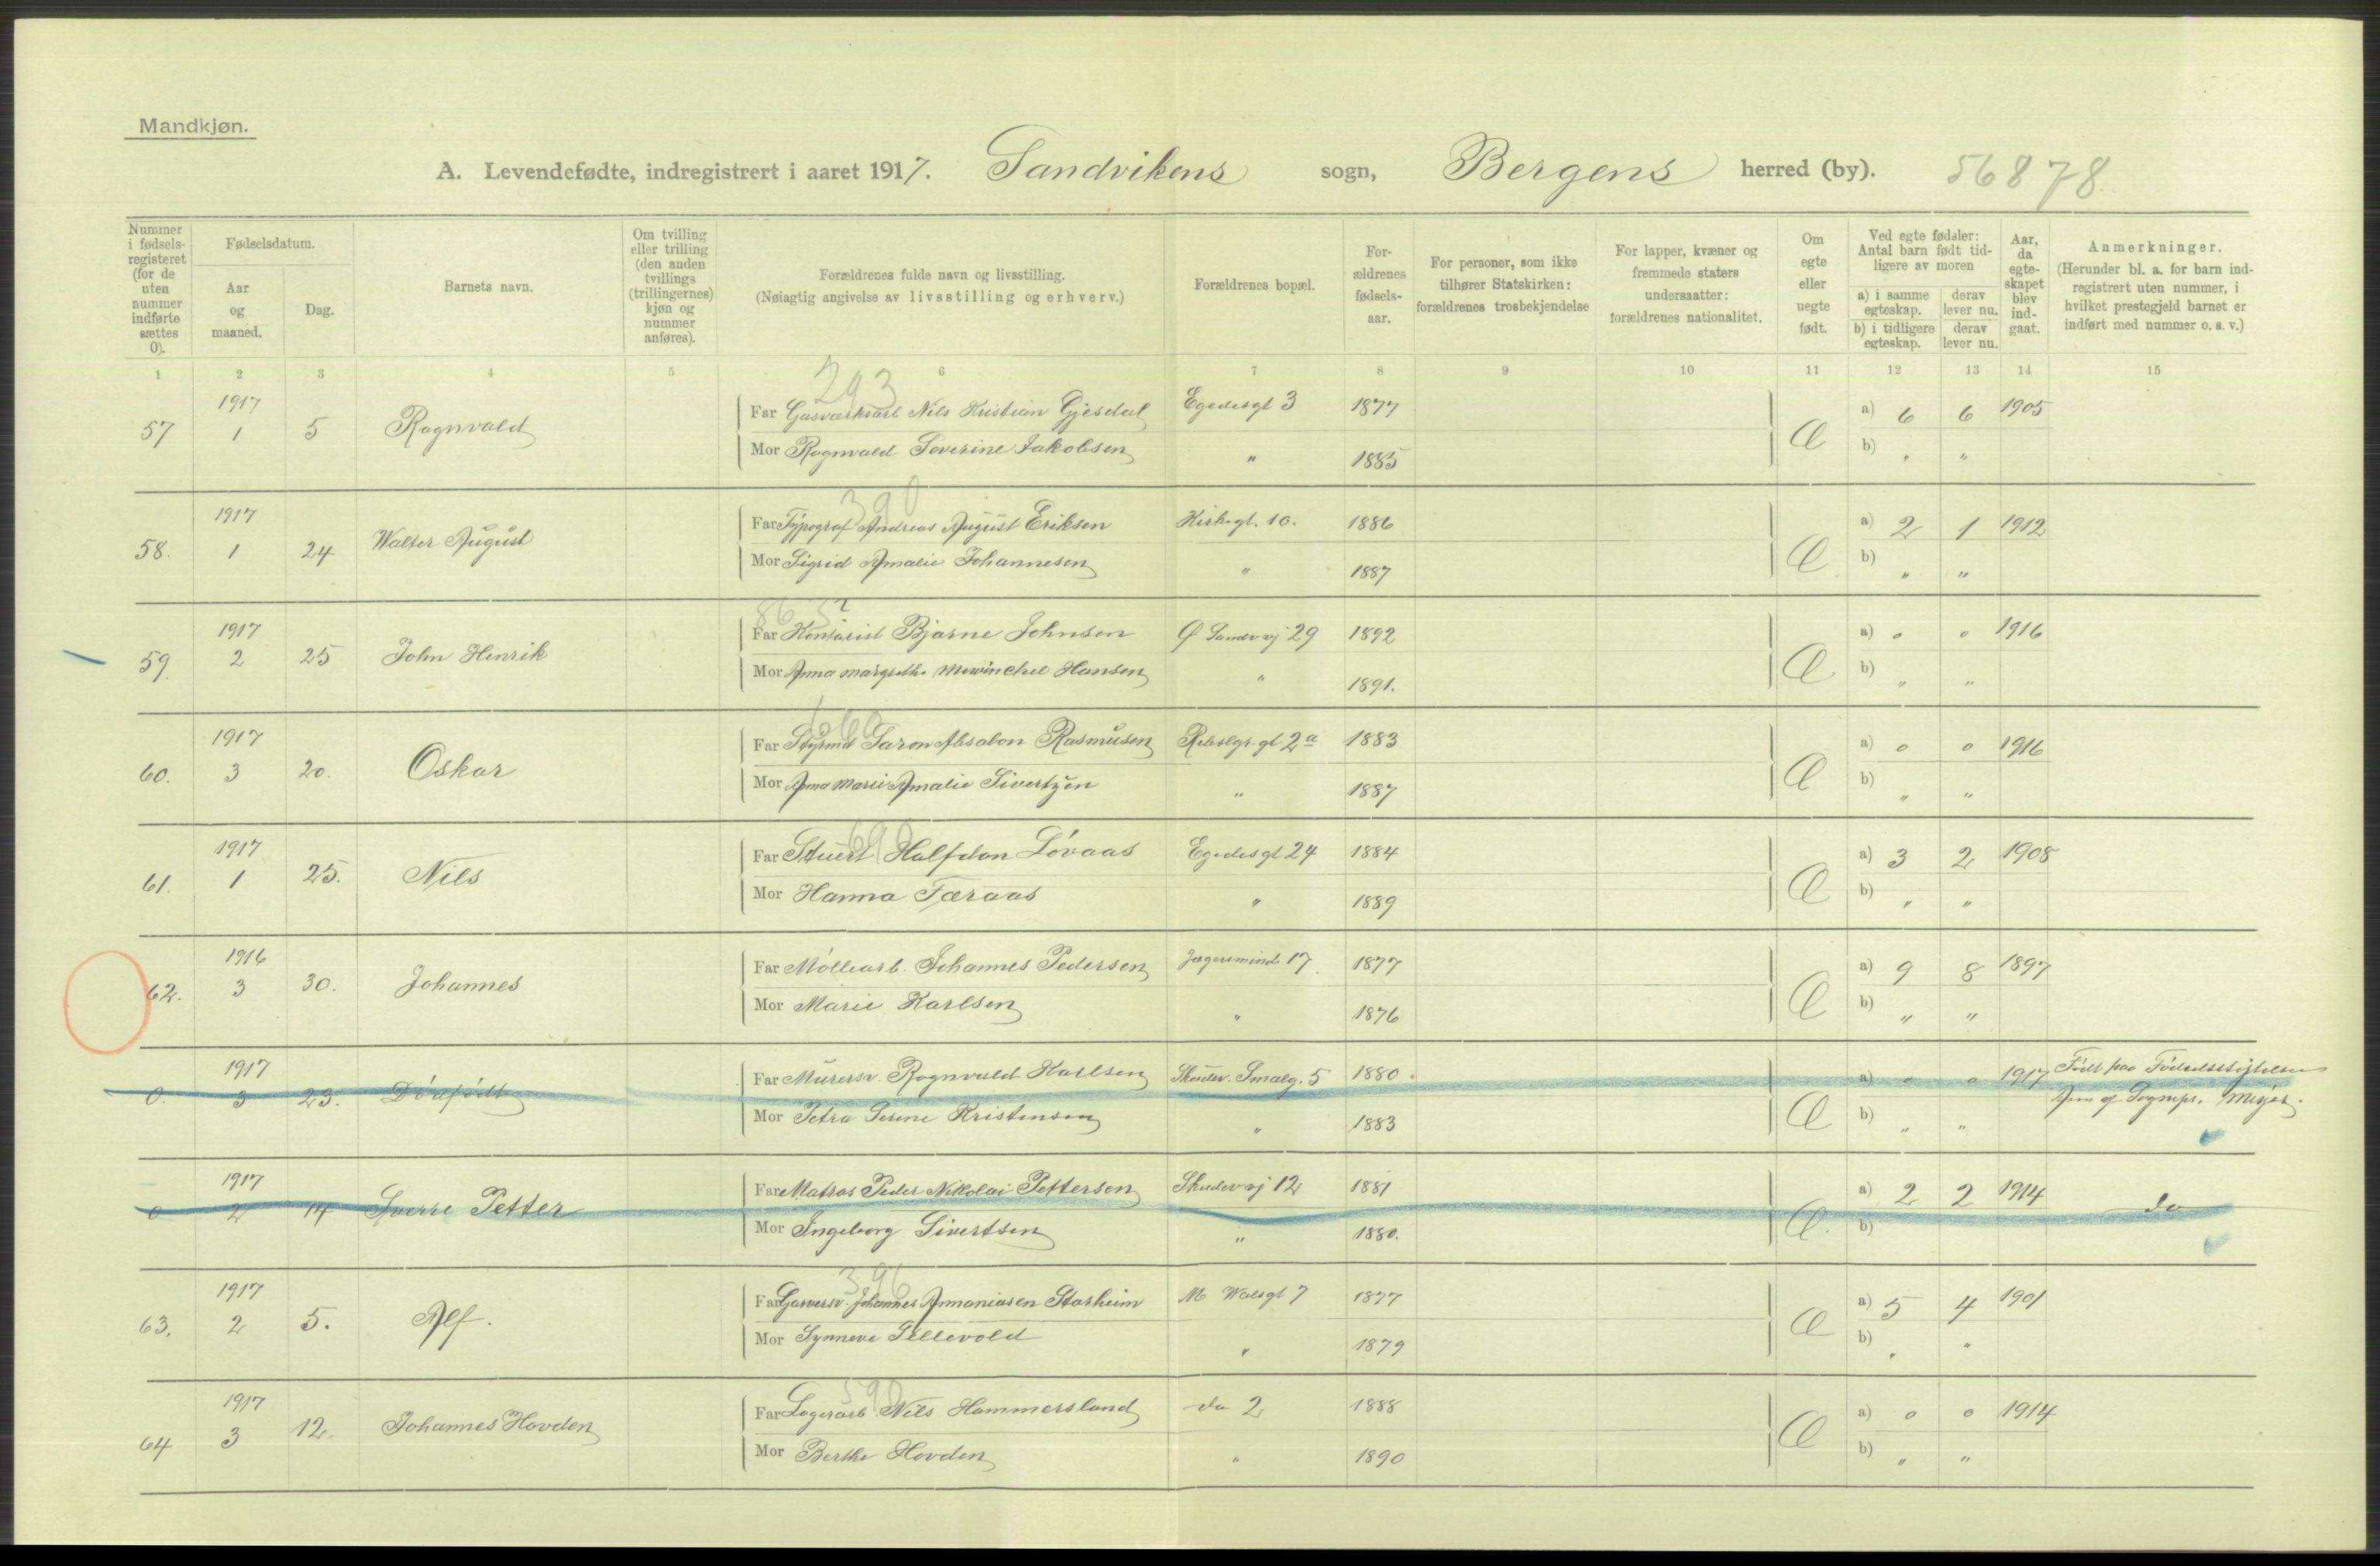 Mandkjøn.
A. Levendefødte, indregistrert i aaret 1917. Sandvikens sogn, Bergens herred (by). 56878
Nummer i fødselsregisteret (for de uten nummer indførte sættes 0).
Fødselsdatum.
Aar og maaned.
Dag.
Barnets navn.
Om tvilling eller trilling (den anden tvillings (trillingernes) kjøn og nummer anføres).
Forældrenes fulde navn og livsstilling.
(Nøiagtig angivelse av livsstilling og erhverv.)
Forældrenes bopæl.
Forældrenes fødselsaar.
For personer, som ikke tilhører Statskirken: forældrenes trosbekjendelse
For lapper, kvæner og fremmede staters undersaatter: forældrenes nationalitet.
Om egte eller uegte født.
Ved egte fødsler: Antal barn født tidligere av moren
a) i samme egteskap. derav lever nu.
b) i tidligere egteskap. derav lever nu.
Aar, da egteskapet blev indgaat.
Anmerkninger.
(Herunder bl. a. for barn indregistrert uten nummer, i hvilket prestegjeld barnet er indført med nummer o. s. v.)
1 2 3 4 5 6 7 8 9 10 11 12 13 14 15
293
57 1917 1 5 Ragnvald Far Gasverksarb Nils Kristian Gjesdal Egedesgt 3 1877 Æ a) 6 6 1905
Mor Ragnvald Severine Jakobsen " 1885 b) " "
390
58. 1917 1 24 Walter August Far Typograf Andreas August Eriksen Kirkegt. 10. 1886 Æ a) 2 1 1912
Mor Sigrid Amalie Johannesen " 1887 b) " "
59. 1917 2 25 John Henrik Far Kontorist Bjarne Johnsen Ø Sandvvj 29 1892 Æ a) 0 0 1916
Mor Anna Margrethe Mowinchel Hansen " 1891. b) " "
660
60. 1917 3 20. Oskar Far Styrmd Saron Absalon Rasmusen Rebslgr.gt 2a 1883 Æ a) 0 0 1916
Mor Anna Marie Amalie Sivertzen " 1887 b) " "
690
61. 1917 1 25. Nils Far Stuert Halfdan Løvaas Egedesgt 24 1884 Æ a) 3 2 1908
Mor Hanna Færaas " 1889 b) " "
62. 1916 3 30. Johannes Far Møllearb. Johannes Pedersen Jægersminde 17 1877 Æ a) 9 8 1897
Mor Marie Karlsen " 1876 b) " "
0. 1917 3 23. Dødfødt Far Murersv. Ragnvald Karlsen Skudev. Smalg. 5 1880 Æ a) 0 0 1917 Født paa Fødselsstiftelsen
Mor Petra Serine Kristensen " 1883 b) " " Anm af Sognepr. Meyer.
0 1917 2 14 Sverre Petter Far Matros Peder Nikolai Pettersen Skudevvj 12 1881 Æ. a) 2 2 1914 do
Mor Ingeborg Sivertsen " 1880. b)
396
63. 1917 2 5. Alf. Far Garversv. Johannes Annaniasen Starheim M Wolsgt 7 1877 Æ a) 5 4 1901
Mor Synneve Sellevold " 1879 b) " "
590
64 1917 3 12. Johannes Hovden Far Lagerarb Nils Hammersland do 2 1888 Æ a) 0 0 1914
Mor Berthe Hovden " 1890 b) " "